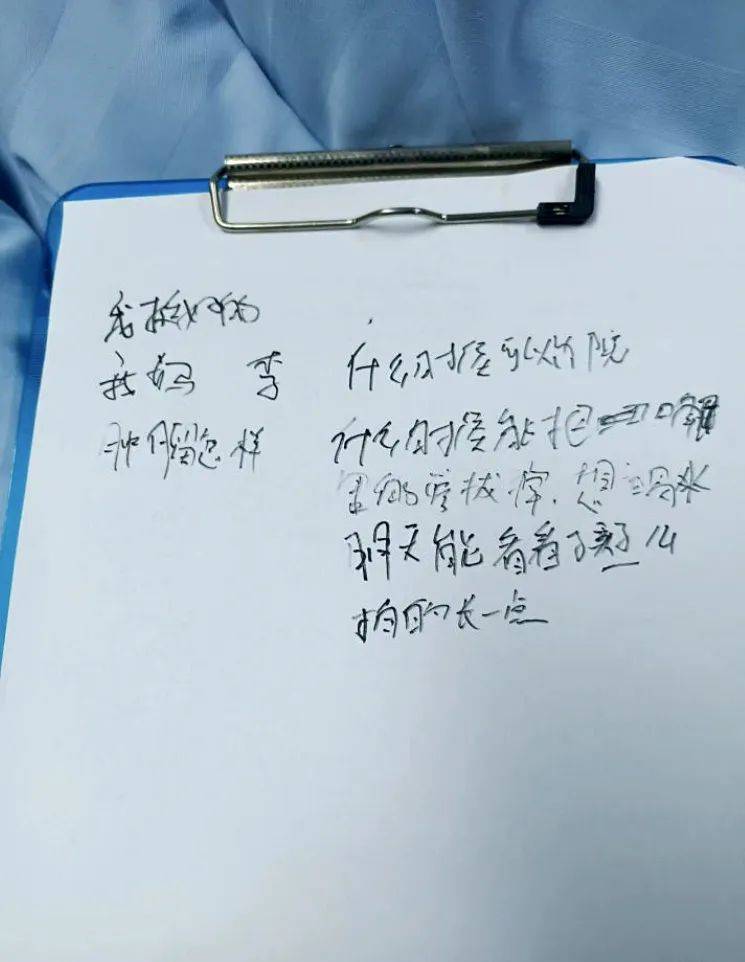 我挺好的
我妈 李
肿瘤怎样
什么时候可以出院
什么时候能把口
里的管拔掉.想喝水
明天能看看孩子么
拍的长一点